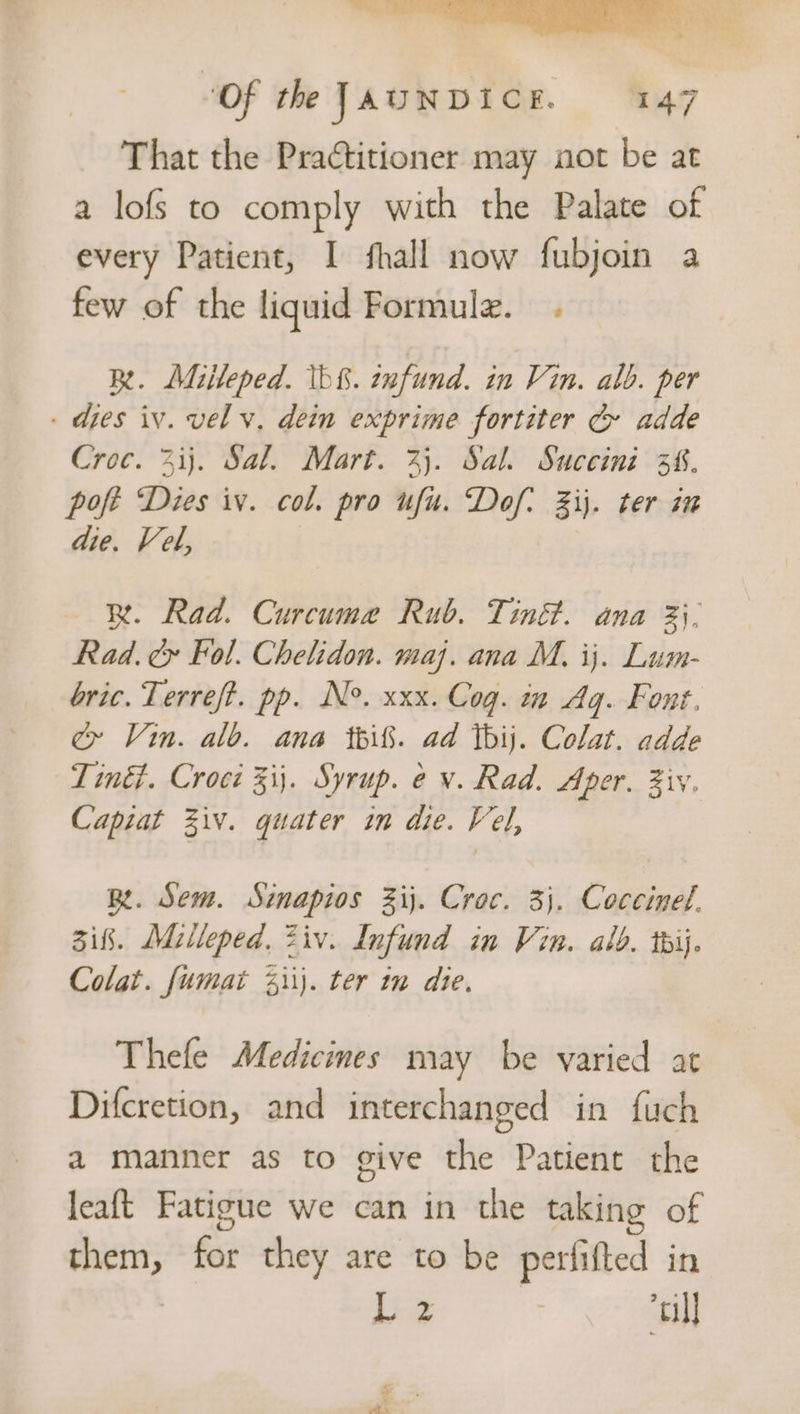 Of the JAUNDICE. 147
That the Practitioner may not be at
a loſs to comply with the Palate of
every Patient, I ſhall now ſubjoin a
few of the liquid Formulæ.
℞. Milleped. ℔ß. infund. in Vin. alb. per
dies iv. vel v. dein exprime fortiter & adde
Croc. ʒij. Sal. Mart. ʒj. Sal. Succini ʒß.
poſt Dies iv. col. pro uſu. Doſ. ℥ij. ter in
die. Vel,
℞. Rad. Curcumæ Rub. Tinct. ana ℥j.
Rad. & Fol. Chelidon. maj. ana M. ij. Lum-
bric. Terreſt. pp. Nº. xxx. Coq. in Aq. Font.
& Vin. alb. ana ℔iß. ad ℔ij. Colat. adde
Tinct. Croci ℥ij. Syrup. è v. Rad. Aper. ℥iv.
Capiat ℥iv. quater in die. Vel,
℞. Sem. Sinapios ℥ij. Croc. ʒj. Coccinel.
ʒiß. Milleped. ℥iv. Infund in Vin. alb. ℔ij.
Colat. ſumat ℥iij. ter in die.
Theſe Medicines may be varied at
Diſcretion, and interchanged in ſuch
a manner as to give the Patient the
leaſt Fatigue we can in the taking of
them, for they are to be perſiſted in
L 2 'till